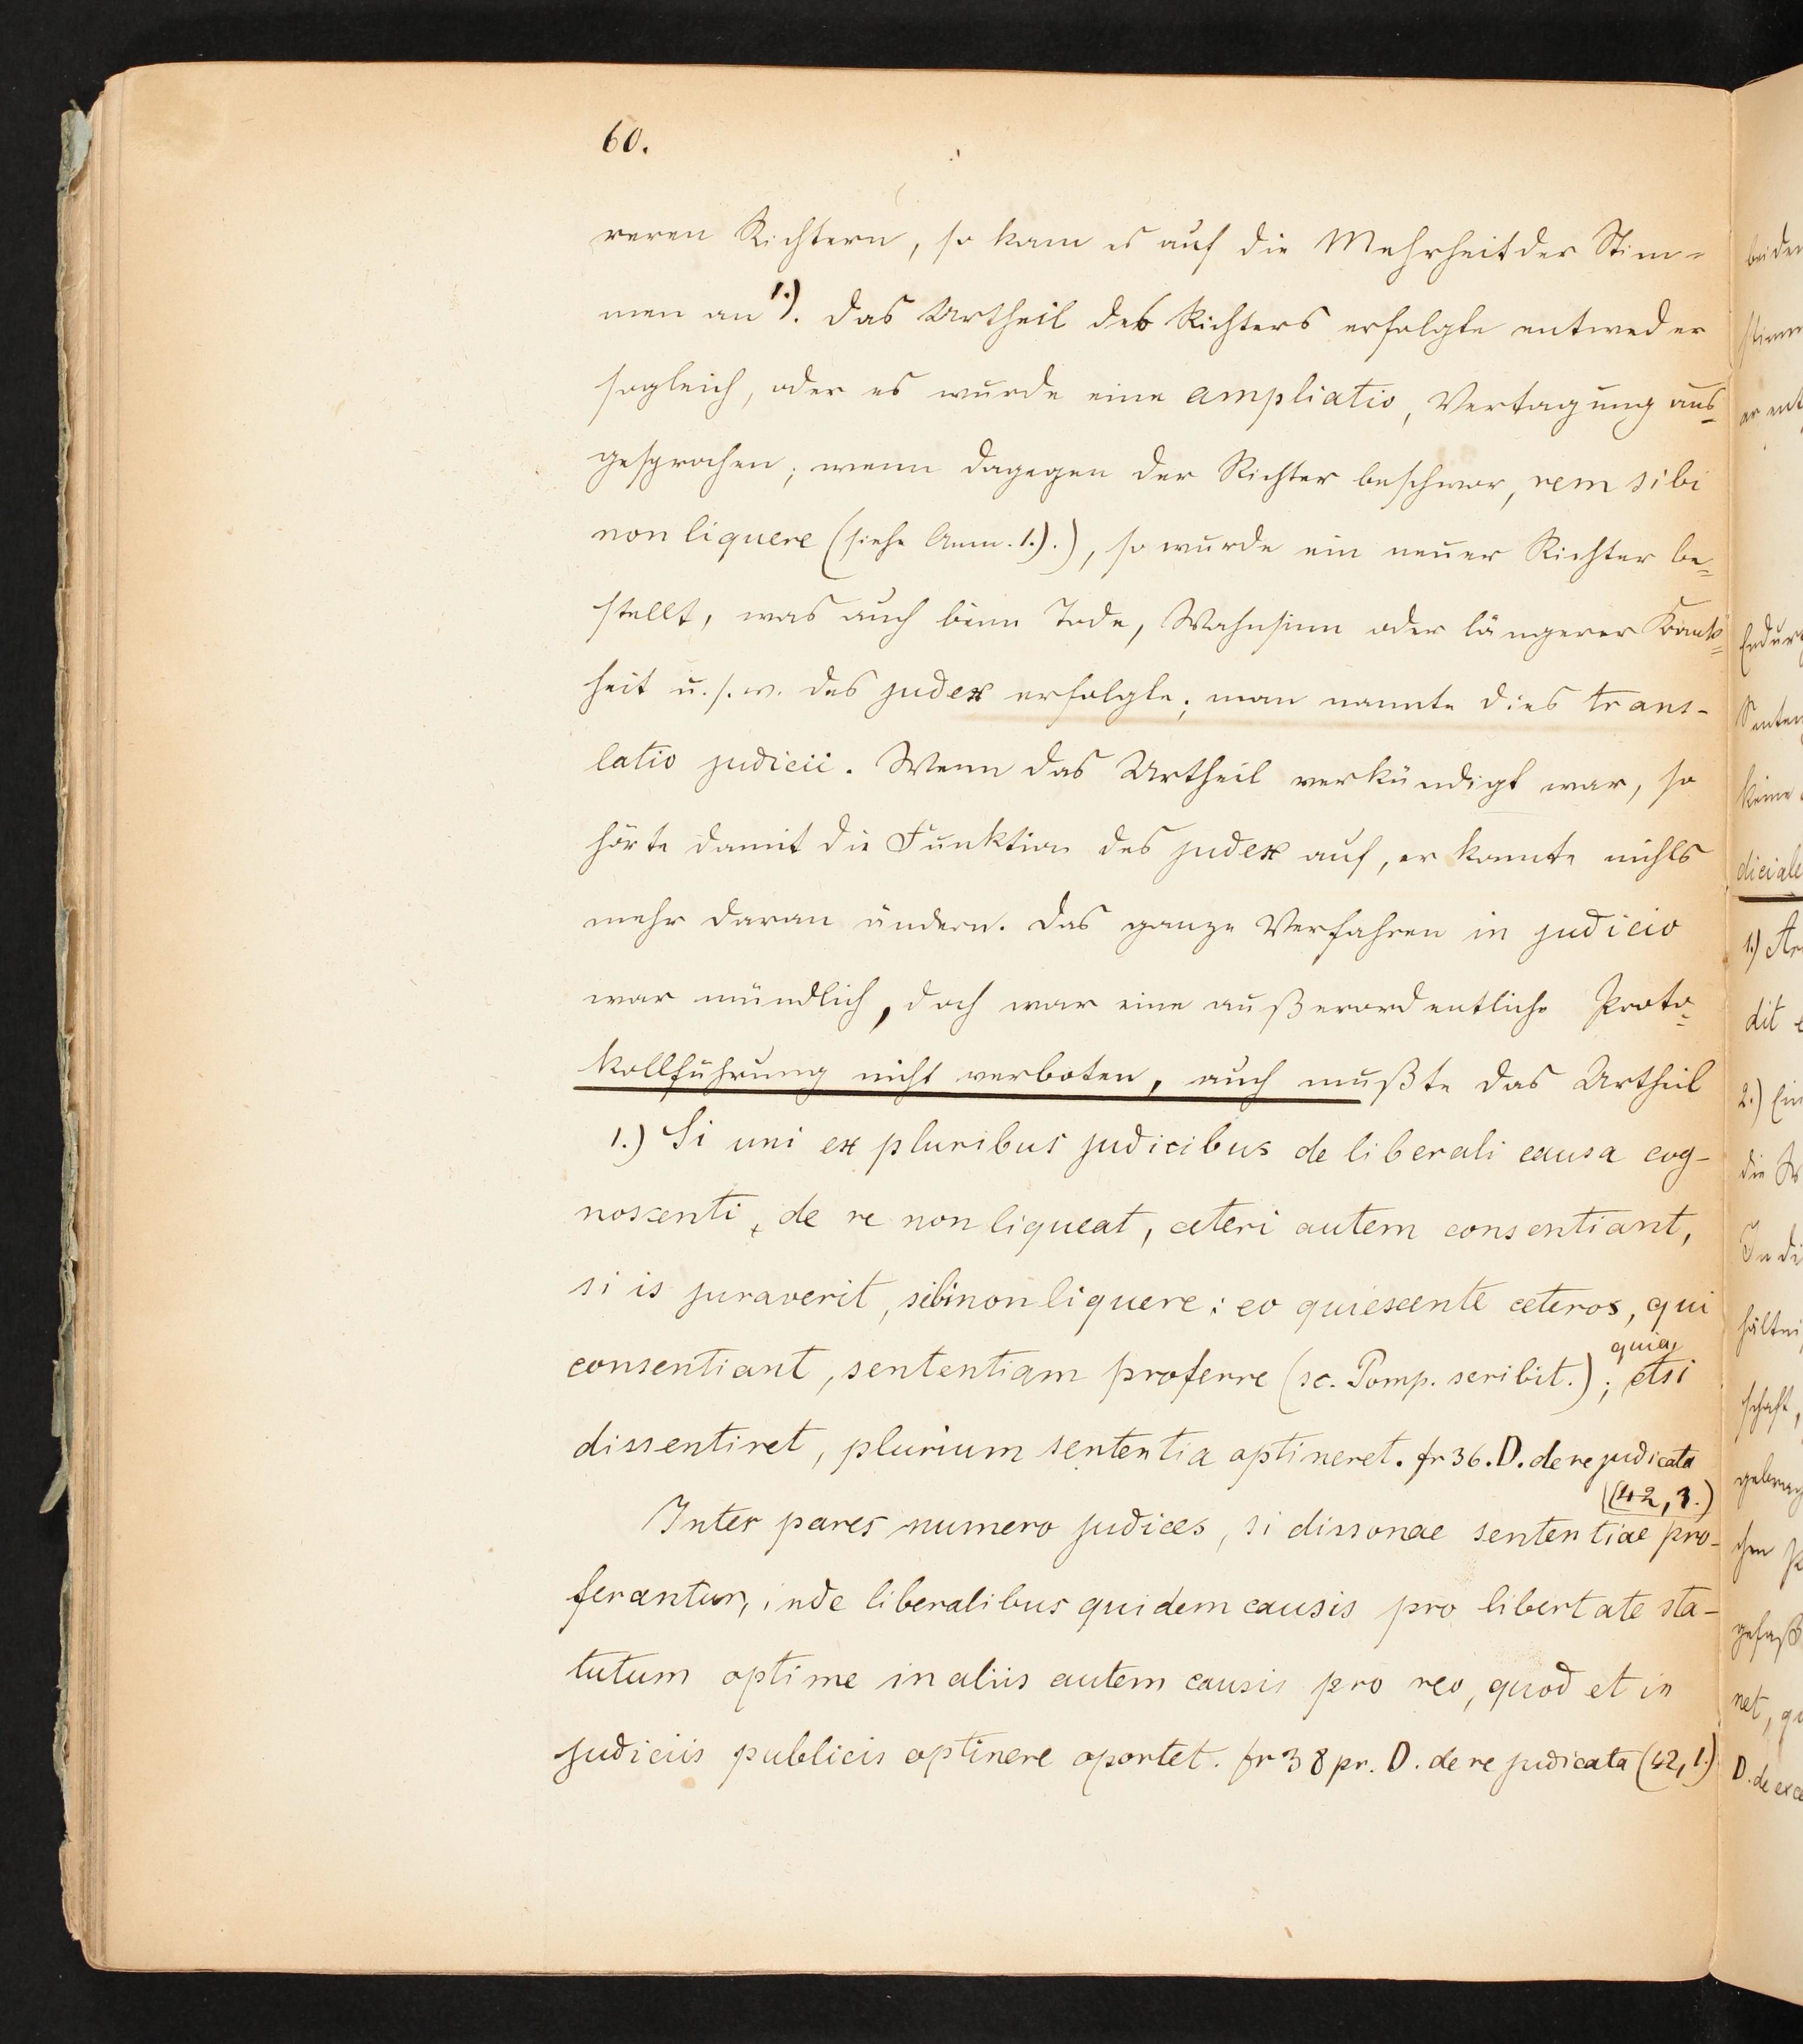 60.
reren Richtern, so kam es auf die Mehrheit der Stim-
men an 1.). Das Urtheil des Richters erfolgte entweder
sogleich, oder es wurde eine ampliatio, Vertagung aus-
gesprochen; wenn dagegen der Richter beschwor, rem sibi
non liquere (siehe Anm. 1.).), so wurde ein neuer Richter be-
stellt, was auch beim Tode, Wahnsinn oder längerer Krank-
heit u. s. w. des judex erfolgte; man nannte dies trans-
latio judicii. Wenn das Urtheil verkündigt war, so
hörte damit die Funktion des judex auf, er konnte nichts
mehr daran ändern. Das ganze Verfahren in judicio
war mündlich, doch war eine außerordentliche Proto-
kollführung nicht verboten, auch mußte das Urtheil
1.) Si uni ex pluribus judicibus de liberali causa cog-
noscenti, de re non liqueat, ceteri autem consentiant,
si is juraverit, sibi non liquere: eo quiescente ceteros, qui
consentiant, sententiam proferre (sc. Pomp. scribit.); quia etsi
dissentiret, plurium sententia optineret. fr 36. D. de re judicata
(42, 1.)
Inter pares numero judices, si dissonae sententiae pro-
ferantur, inde liberalibus quidem causis pro libertate sta-
tutum optime in aliis autem causis pro reo, quod et in
judiciis publicis optinere oportet. fr 38 pr. D. de re judicata (42, 1.)